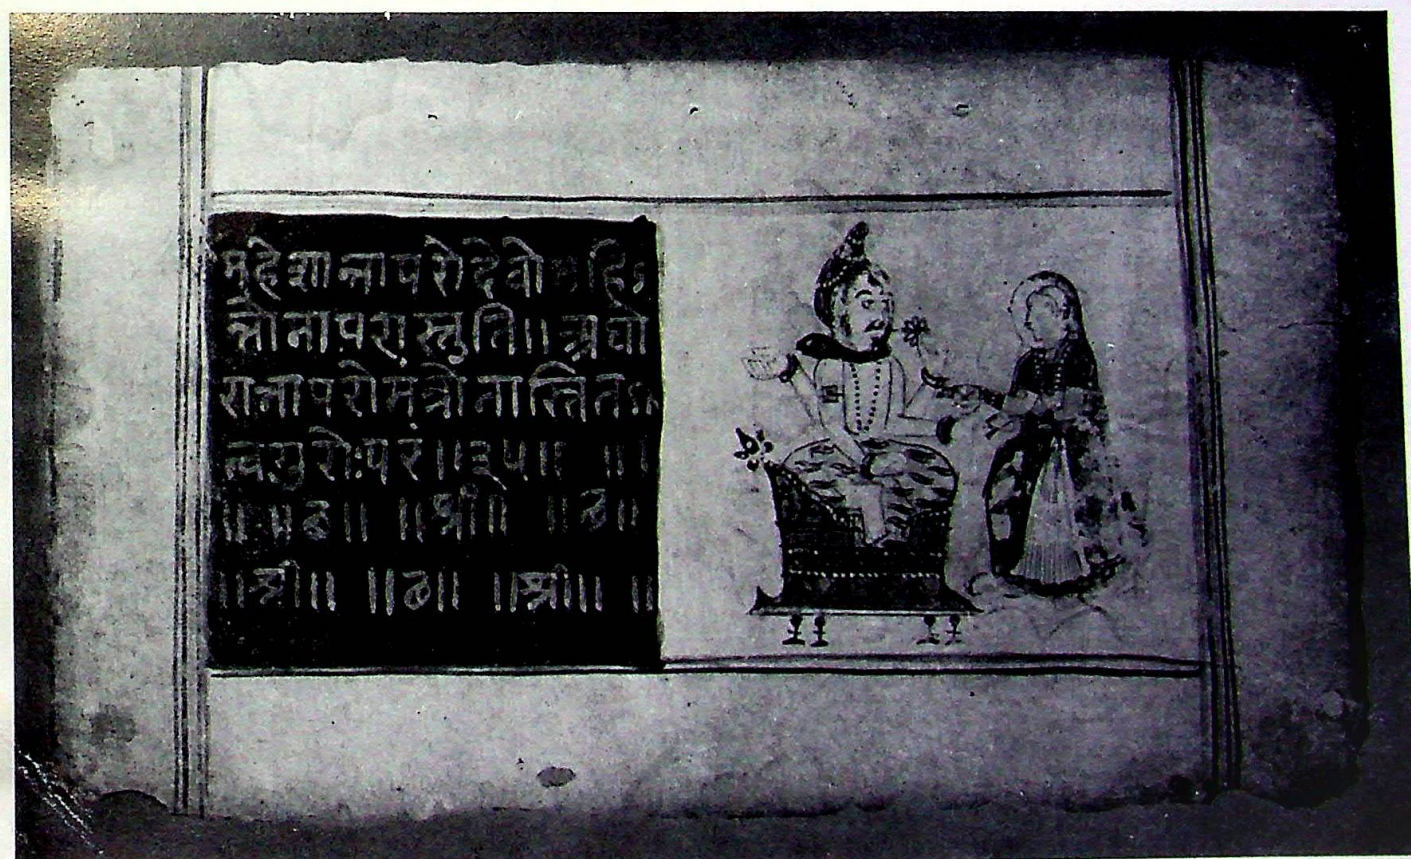 महेशान्नापरोदेवो महि
म्नोनापरास्तुति॥अघो
रान्नापरोमंत्रोनास्तित
त्वगुरोःपरं॥३५॥ ॥
॥ ॥छ॥ ॥श्री॥ ॥छ॥
॥श्री॥ ॥छ॥ ॥श्री॥ ॥